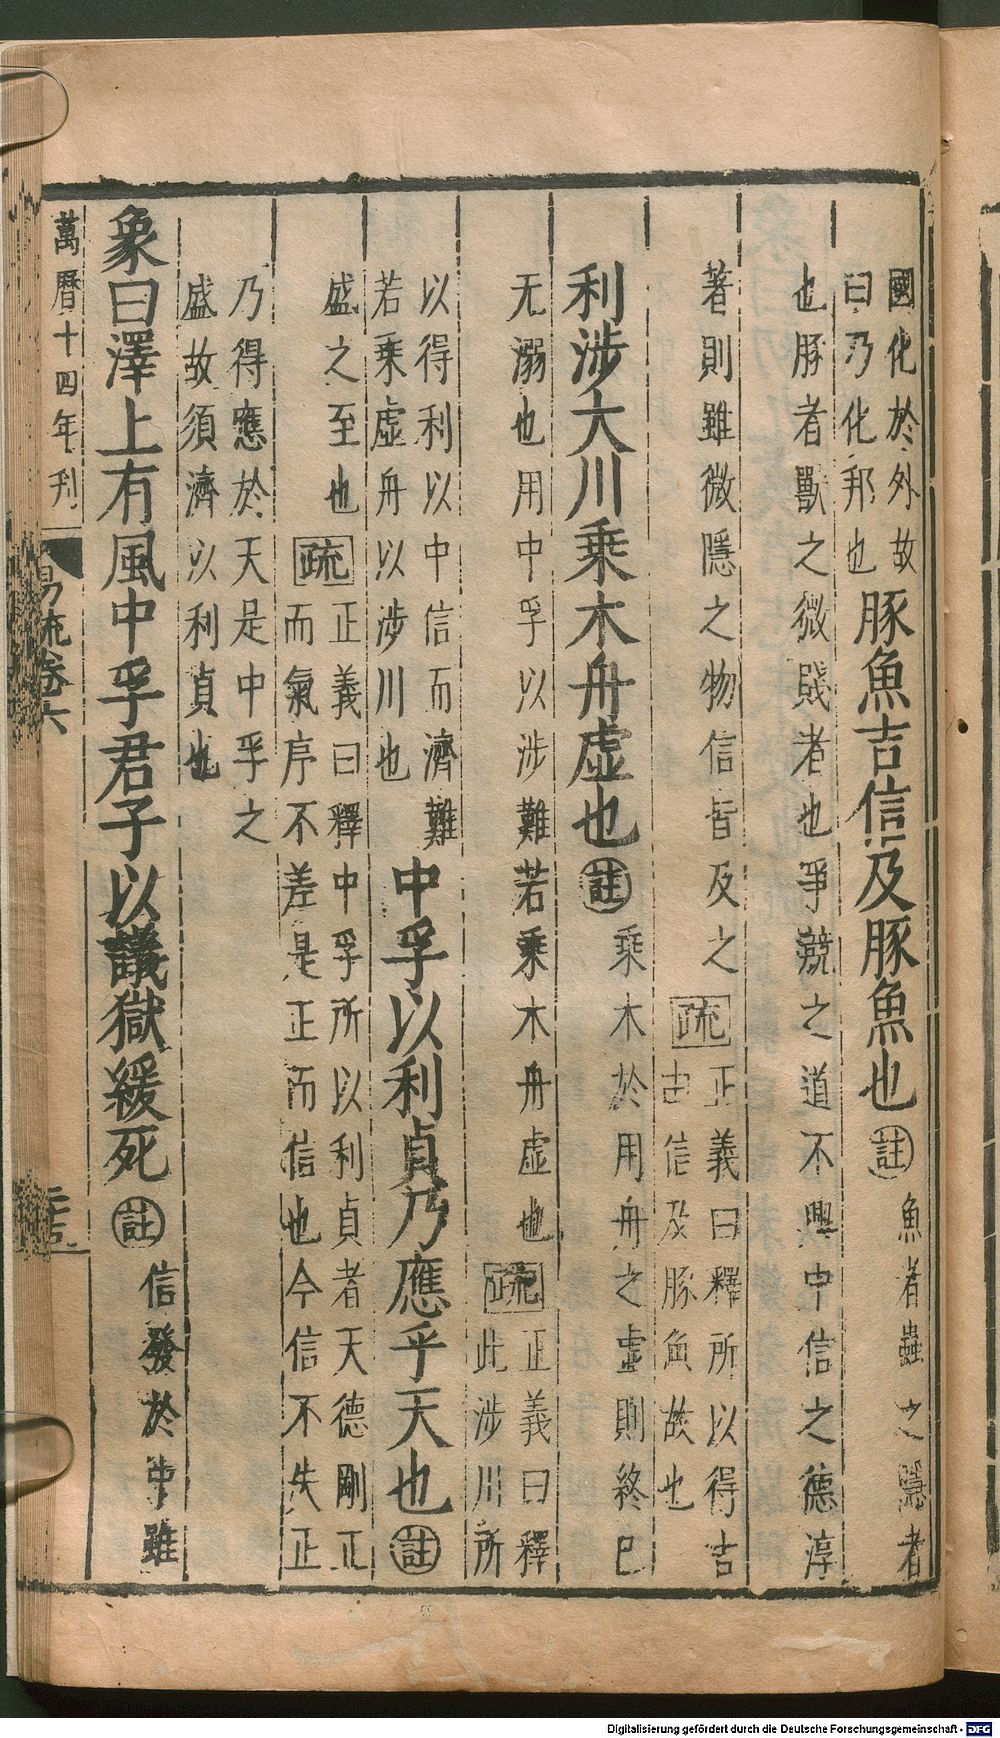 國化於外故
曰乃化邦也
豚魚吉信及豚魚也註
魚者蟲之隱者
也豚者獸之微賤者也爭競之道不興中信之德淳
著則雖微隱之物信皆及之疏
正義曰釋所以得吉
由信及豚魚故也
利涉大川乗木舟虛也註
乗木於用舟之虛則終已
无溺也用中孚以涉難若乗木舟虛也疏
正義曰釋
此涉川所
以得利以中信而濟難
若乗虛舟以涉川也
中孚以利貞乃應乎天也註
盛之至也疏
正義曰釋中孚所以利貞者天德剛正
而氣序不差是正而信也今信不失正
乃得應於天是中孚之
盛故須濟以利貞也
象曰澤上有風中孚君子以議獄緩死註
信發於中雖
萬曆十四年刊
易疏卷六
Digitalisierung gefördert durch die Deutsche Forschungsgemeinschaft - DFG